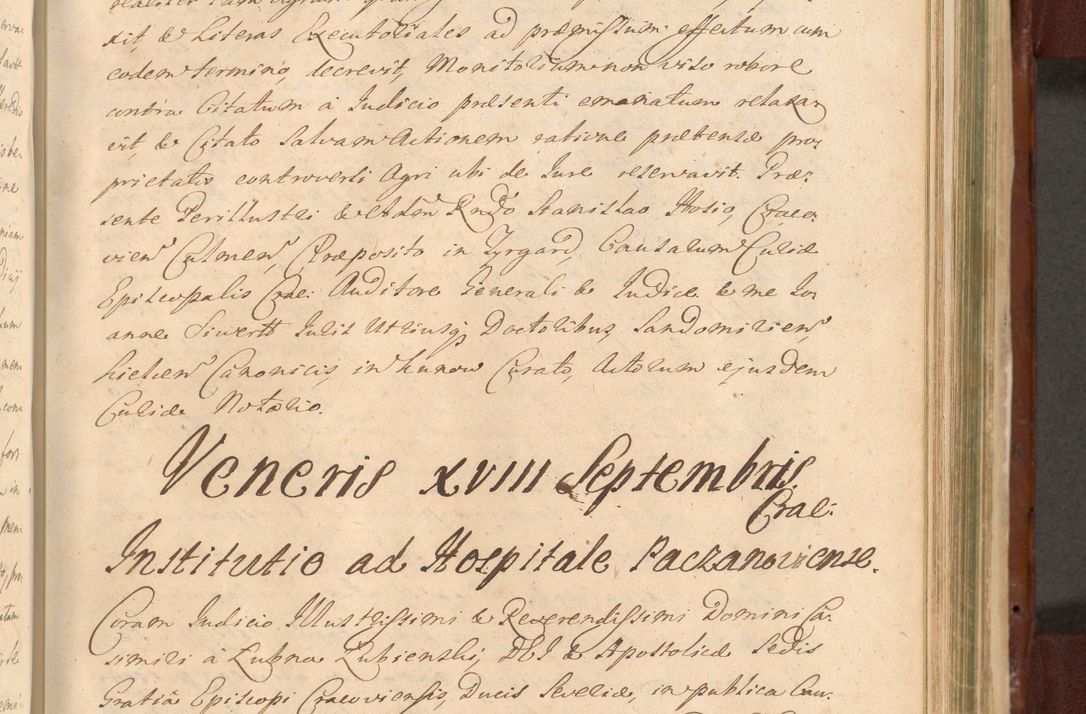 xit & Literas Executoriales ad præmissum effectum cum
eodem termino decrevit, Monitorium non viso robore
contra Citatum à Judicio præsenti emanatum relaxa„
vit & Citato salvam Actionem ratione prætensæ pro„
prietatis controversi Agri ubi de Jure reservavit. Præ„
sente Perillustri & Adm̃ Rndo Stanislao Hosio, Craco„
vien̄ Culmen̄, Præposito in Tyrgard Causarum Curiæ
Episcopalis Crac: Auditore Generali & Judice & me Jo„
anne Siwertt Juris Utriusq; Doctoribus, Sandomirien̄
Kielcen̄ Canonicis, in Kunow Curato, Actorum ejusdem
Curiæ Notario.
Veneris XVIII Septembris
Crac:
Institutio ad Hospitale Paczanoviense.
Coram Judicio Illustrissimi & Reverendissimi Domini Ca„
simiri à Lubna Łubienski, DEI & Apostolicæ Sedis
Gratiâ Episcopi Cracoviensis, Ducis Severiæ, in publica Cau„